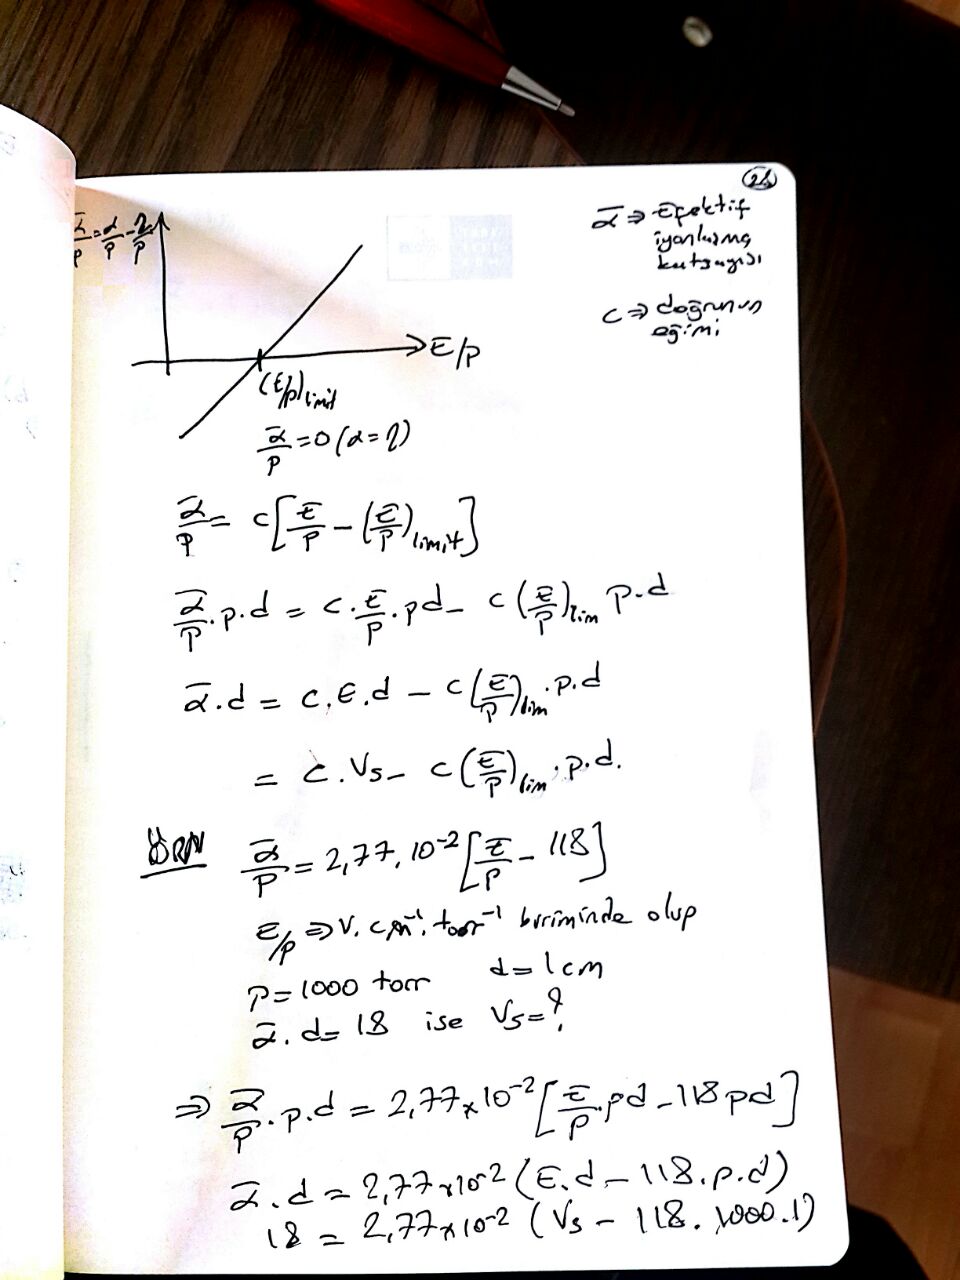 24
ᾱ/p = α/p - η/p
ᾱ ⇒ Efektif
iyonlaşma
katsayısı
c ⇒ doğrunun
eğimi
E/p
(E/p)limit
ᾱ/p = 0 (α = η)
ᾱ/p = c[E/p - (E/p)limit]
ᾱ/p . p.d = c. E/p . pd - c (E/p)lim p.d
ᾱ.d = c.E.d - c(E/p)lim . p.d
= c.Vs - c(E/p)lim . p.d.
ÖRN ᾱ/p = 2,77.10⁻² [E/p - 118]
E/p ⇒ V.cm⁻¹.torr⁻¹ biriminde olup
p = 1000 torr d = 1 cm
ᾱ.d = 18 ise Vs = ?
⇒ ᾱ/p . p.d = 2,77x10⁻² [E/p . pd - 118 pd]
ᾱ.d = 2,77x10⁻² (E.d - 118.p.d)
18 = 2,77x10⁻² (Vs - 118.1000.1)